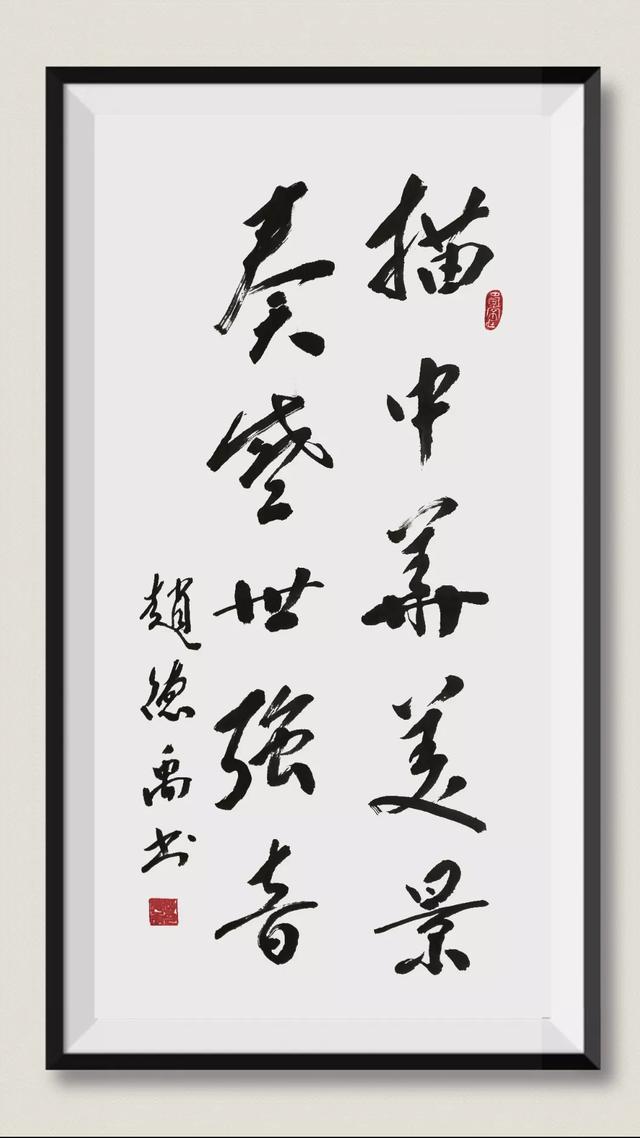 描中华美景
奏盛世强音
趙德禹书